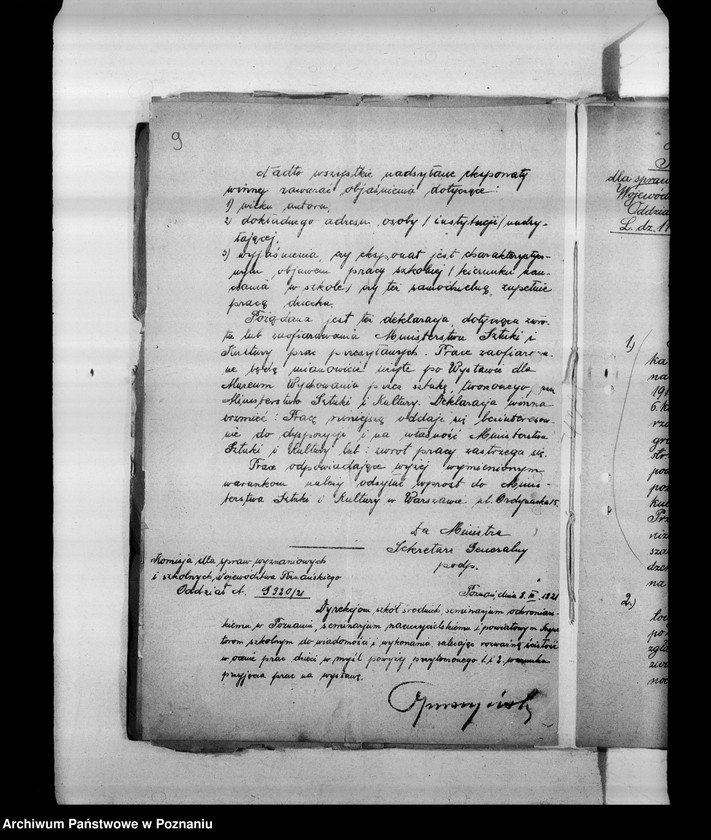 9
Nadto wszystkie nadsyłane eksponaty
winny zawierać objaśnienia dotyczące:
1) wieku autora,
2) dokładnego adresu osoby / instytucji / nadsy-
łającej,
3) wyjaśnienia, czy eksponat jest charakterystycz-
nym objawem pracy szkolnej / kierunku nau-
czania w szkole / czy też samodzielną, zupełnie
pracą dziecka.
Pożądana jest też deklaracja, dotycząca zwro-
tu lub zaofiarowania Ministerstwu Sztuki i
Kultury prac przesyłanych. Prace zaofiarowa-
ne będą mianowicie użyte po Wystawie dla
Muzeum Wychowania przez sztukę, tworzonego przez
Ministerstwo Sztuki i Kultury. Deklaracja winna
brzmieć: Pracę niniejszą oddaje się bezinteresow-
nie do dyspozycji i na własność Ministerstwa
Sztuki i Kultury lub: zwrot pracy zastrzega się.
Prace odpowiadające wyżej wymienionym
warunkom należy odsyłać wprost do Minis-
terstwa Sztuki i Kultury w Warszawie ul. Ordynacka 15.
Za Ministra
Sekretarz Generalny
podp.
Komisja dla spraw wyznaniowych
i szkolnych, Województwa Poznańskiego
Oddział A. 9920/21
Poznań, dnia 9. III. 1921
Dyrekcjom szkół średnich, seminarjum ochroniar-
skiemu w Poznaniu, seminarjum nauczycielskiemu i powiatowym inspek-
torom szkolnym do wiadomości i wykonania zalecając rozważną ścisłość
w ocenie prac dzieci w myśl powyżej przytoczonego 1. i 2. warunku
przyjęcia prac na wystawę.
dla spraw
Wojewód
Oddzia
L. dz. 11
1)
ka
na
191
6. k
2.)
Archiwum Państwowe w Poznaniu